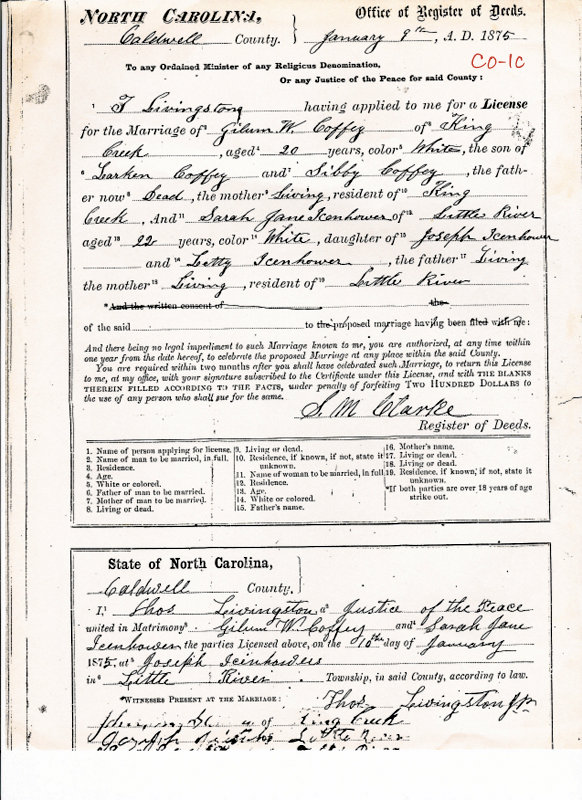 NORTH CAROLINA, Office of Register of Deeds.
Caldwell County. January 9th, A. D. 1875
CO-1C
To any Ordained Minister of any Religious Denomination.
Or any Justice of the Peace for said County:
1 T Livingston having applied to me for a License
for the Marriage of 2 Gilum W. Coffey of 3 King
Creek, aged 4 20 years, color 5 White, the son of
6 Larken Coffey and 7 Sibby Coffey, the fath-
er now 8 Dead, the mother 9 Living, resident of 10 King
Creek, And 11 Sarah Jane Icenhower of 12 Little River
aged 13 22 years, color 14 White, daughter of 15 Joseph Icenhower
and 16 Letty Icenhower, the father 17 Living
the mother 18 Living, resident of 19 Little River
*And the written consent of the
of the said to the proposed marriage having been filed with me:
And there being no legal impediment to such Marriage known to me, you are authorized, at any time within
one year from the date hereof, to celebrate the proposed Marriage at any place within the said County.
You are required within two months after you shall have celebrated such Marriage, to return this License
to me, at my office, with your signature subscribed to the Certificate under this License, and with THE BLANKS
THEREIN FILLED ACCORDING TO THE FACTS, under penalty of forfeiting TWO HUNDRED DOLLARS to
the use of any person who shall sue for the same.
S. M Clarke
Register of Deeds.
1. Name of person applying for license.
2. Name of man to be married, in full.
3. Residence.
4. Age.
5. White or colored.
6. Father of man to be married.
7. Mother of man to be married.
8. Living or dead.
9. Living or dead.
10. Residence, if known, if not, state it
unknown.
11. Name of woman to be married, in full.
12. Residence.
13. Age.
14. White or colored.
15. Father's name.
16. Mother's name.
17. Living or dead.
18. Living or dead.
19. Residence, if known, if not, state it
unknown.
*If both parties are over 18 years of age
strike out.
State of North Carolina,
Caldwell County.
I, 1 Thos Livingston a 2 Justice of the Peace
united in Matrimony 3 Gilum W Coffey and 4 Sarah Jane
Icenhower the parties Licensed above, on the 10th day of January
1875, at 5 Joseph Icenhowers
in 6 Little River Township, in said County, according to law.
Thos Livingston J.P.
*WITNESSES PRESENT AT THE MARRIAGE:
of King Creek
Joseph Little River